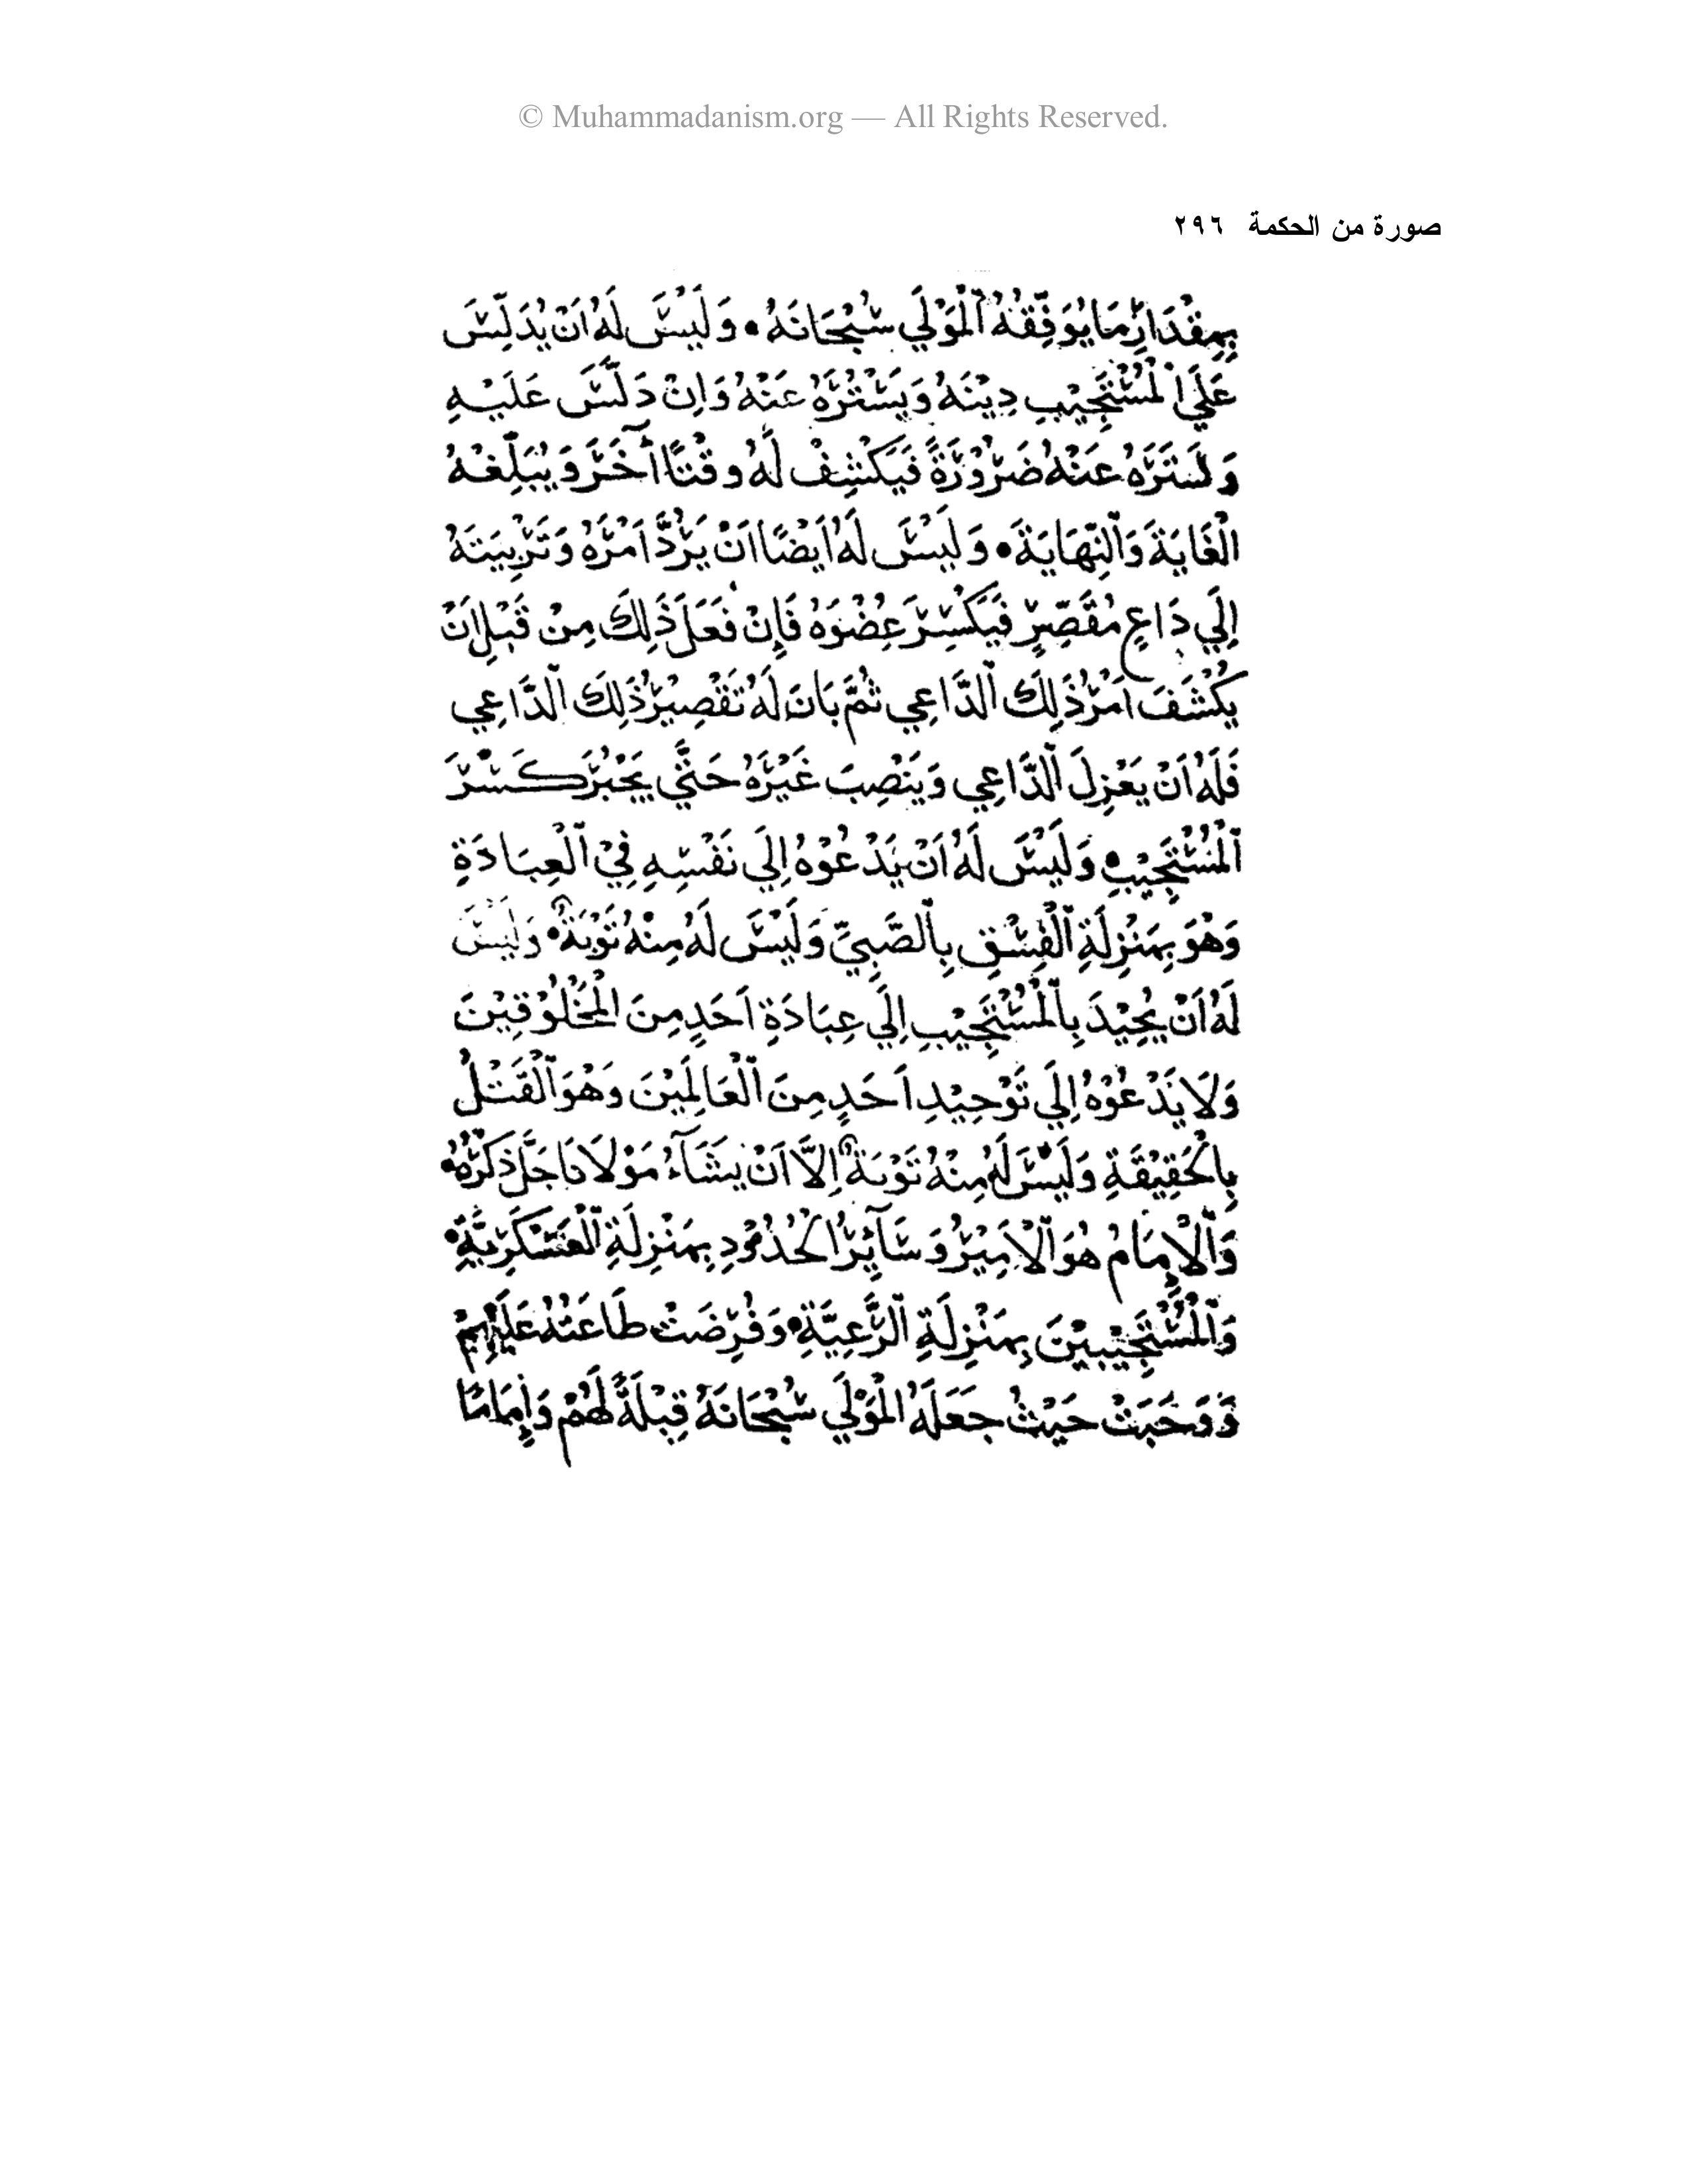 © Muhammadanism.org — All Rights Reserved.
صورة من الحكمة ٢٩٦
بِمِقْدَارِ مَا يُوَفِّقُهُ ٱلْمَوْلَي سُبْحَانَهُ • وَلَيْسَ لَهُ اَنْ يُدَلِّسَ
عَلَيَ ٱلْمُسْتَجِيْبِ دِيْنَهُ وَيَسْتُرَهُ عَنْهُ وَاِنْ دَلَّسَ عَلَيْهِ
وَسَتَرَهُ عَنْهُ ضَرُوْرَةً فَيَكْشِفْ لَهُ وقْتًا آخَرَ وَيُبَلِّغهُ
الْغَايَةَ وَٱلنِّهَايَةَ • وَلَيْسَ لَهُ اَيْضًا اَنْ يَرُدَّ اَمْرَهُ وَتَرْبِيَتَهُ
اِلَي دَاعٍ مُقَصِّرٍ فَيَكْسِرَ عِضْوَهُ فَاِنْ فَعَلَ ذَلِكَ مِنْ قَبْلِ اَنْ
يَكْشَفَ اَمْرُ ذَلِكَ ٱلدَّاعِي ثُمَّ بَانَ لَهُ تَقْصِيْرُ ذَلِكَ ٱلدَّاعِي
فَلَهُ اَنْ يَعْزِلَ ٱلدَّاعِي وَيَنْصِبَ غَيْرَهُ حَتَّي يَجْبُرَ كَسْرَ
ٱلْمُسْتَجِيْبِ • وَلَيْسَ لَهُ اَنْ يَدْعُوْهُ اِلَي نَفْسِهِ فِيْ ٱلْعِبَادَةِ
وَهْوَ بِمَنْزِلَةِ ٱلْفِسْقِ بِٱلصَّبِيِّ وَلَيْسَ لَهُ مِنْهُ تَوْبَةٌ • وَلَيْسَ
لَهُ اَنْ يُحِيْدَ بِٱلْمُسْتَجِيْبِ اِلَي عِبَادَةِ اَحَدٍ مِنَ الْمَخْلُوْقِيْنَ
وَلَا يَدْعُوْهُ اِلَي تَوْحِيْدِ اَحَدٍ مِنَ ٱلْعَالَمِيْنَ وَهْوَ ٱلْقَتْلُ
بِالْحَقِيْقَةِ وَلَيْسَ لَهُ مِنْهُ تَوْبَةٌ اِلَّا اَنْ يَشَآءُ مَوْلَانَا جَلَّ ذِكْرُهُ •
وَٱلْاِمَامُ هُوَ ٱلْاَمِيْرُ وَسَآئِرُ الْحُدُوْدِ بِمَنْزِلَةِ ٱلْعَسْكَرِيَّةِ •
وَٱلْمُسْتَجِيْبِيْنَ بِمَنْزِلَةِ ٱلرَّعِيَّةِ • وَفُرِضَتْ طَاعَتُهُ عَلَيْهِمْ
وَوَجَبَتْ حَيْثُ جَعَلَهُ الْمَوْلَي سُبْحَانَهُ قِبْلَةً لَهُمْ وَاِمَامًا